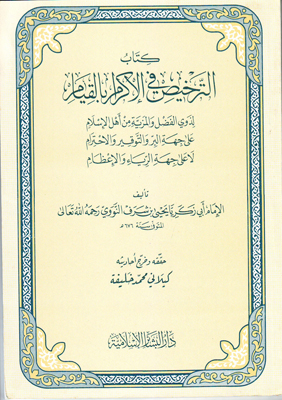 كتاب
الترخيص في الإكرام بالقيام
لذوي الفضل والمزية من أهل الإسلام
على جهة البر والتوقير والاحترام
لا على جهة الرياء والإعظام
تأليف
الإمام أبي زكريا يحيى بن شرف النووي رحمه الله تعالى
المتوفى سنة ٦٧٦ هـ
حققه وخرج أحاديثه
كيلاني محمد خليفة
دار البشائر الإسلامية